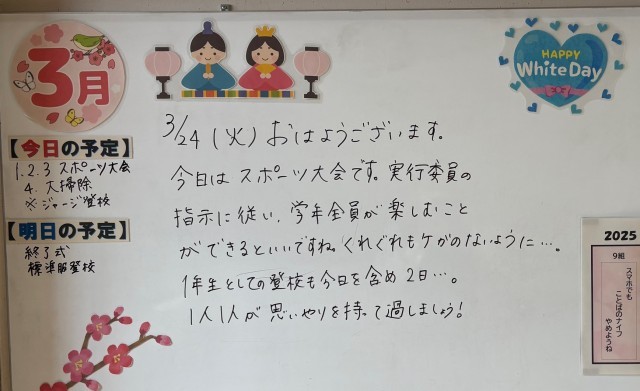 3月
HAPPY
White Day
3/24(火)おはようございます。
今日はスポーツ大会です。実行委員の
指示に従い、学年全員が楽しむこと
ができるといいですね。くれぐれもケガのないように…。
1年生としての登校も今日を含め2日…。
1人1人が思いやりを持って過しましょう!
【今日の予定】
1.2.3 スポーツ大会
4. 大掃除
※ジャージ登校
【明日の予定】
終了式
標準服登校
2025
9組
スマホでも
ことばのナイフ
やめようね